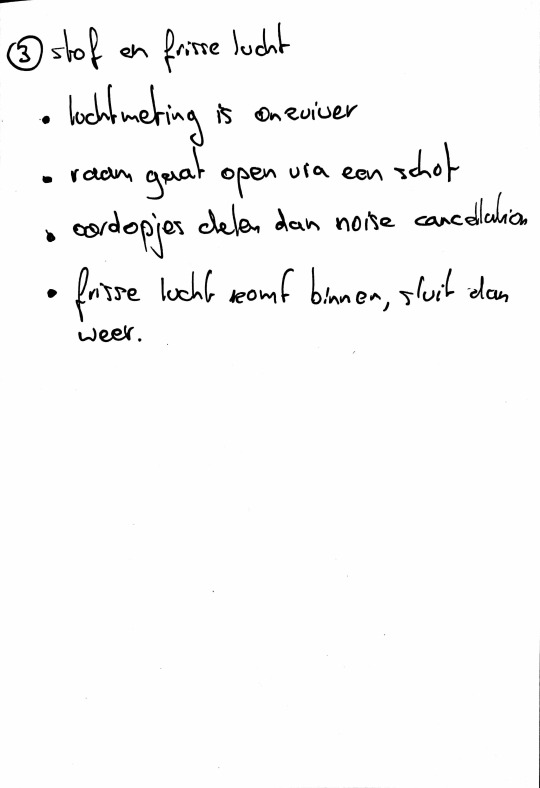 ③ stof en frisse lucht
• luchtmeting is onzuiver
• raam gaat open via een schot
• oordopjes delen dan noise cancellation
• frisse lucht komt binnen, sluit dan
weer.